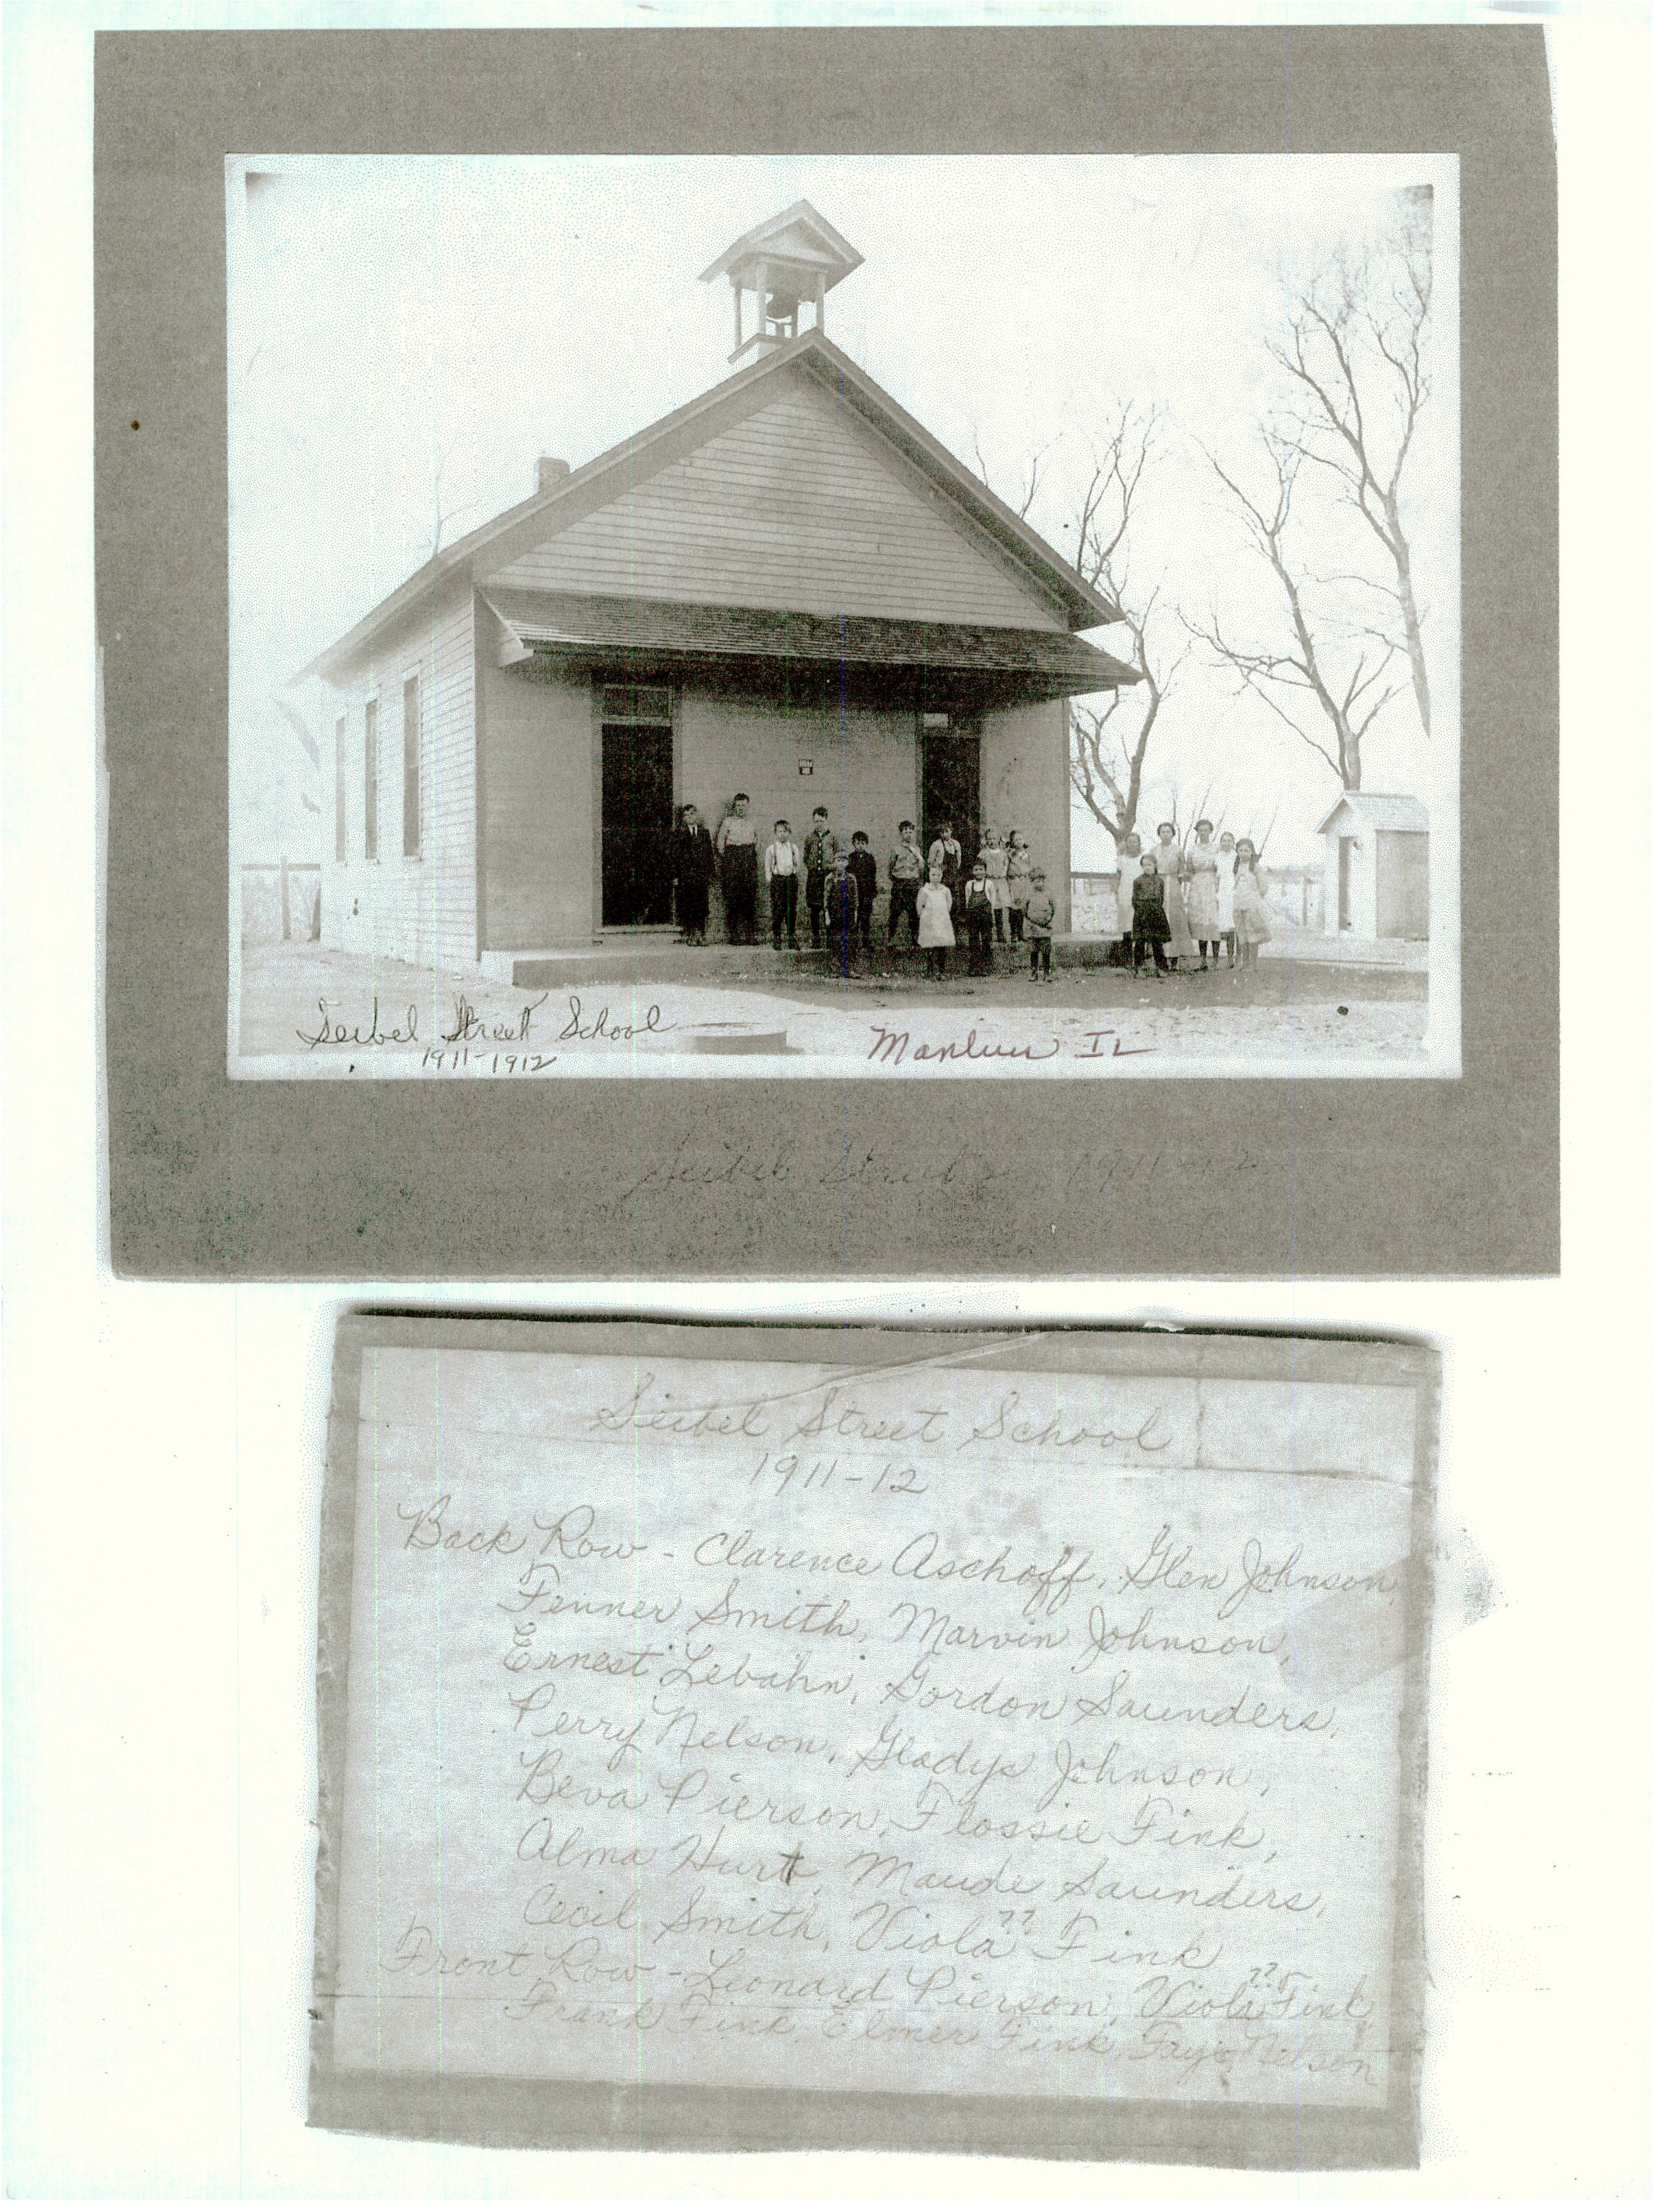 Seibel Street School
1911-1912
Manlius IL
Seibel Street 1911-12
Seibel Street School
1911-12
Back Row - Clarence Aschoff, Glen Johnson,
Fenner Smith, Marvin Johnson,
Ernest Lebahn, Gordon Saunders,
Perry Nelson, Gladys Johnson,
Beva Pierson, Flossie Fink,
Alma Hurt, Maude Saunders,
Cecil Smith, Viola ?? Fink
Front Row - Leonard Pierson, Viola ?? Fink,
Frank Fink, Elmer Fink, Faye Nelson